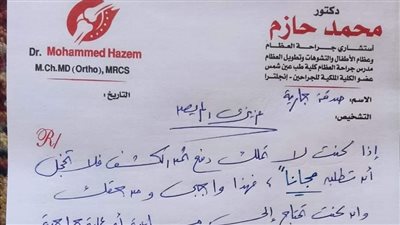 دكتور
محمد حازم
أستشاري جراحة العظام
وعظام الأطفال والتشوهات وتطويل العظام
مدرس جراحة العظام كلية طب عين شمس
عضو الكلية الملكية للجراحين - إنجلترا
Dr. Mohammed Hazem
M.Ch.MD (Ortho), MRCS
الاسم: صدقة جارية
التاريخ:
التشخيص:
عزيزي المريض
R/
إذا كنت لا تملك دفع ثمن الكشف فلا تخجل
أن تطلبه "مجاناً"، فهذا واجبي ومن حقك
وإن كنت تحتاج إلى